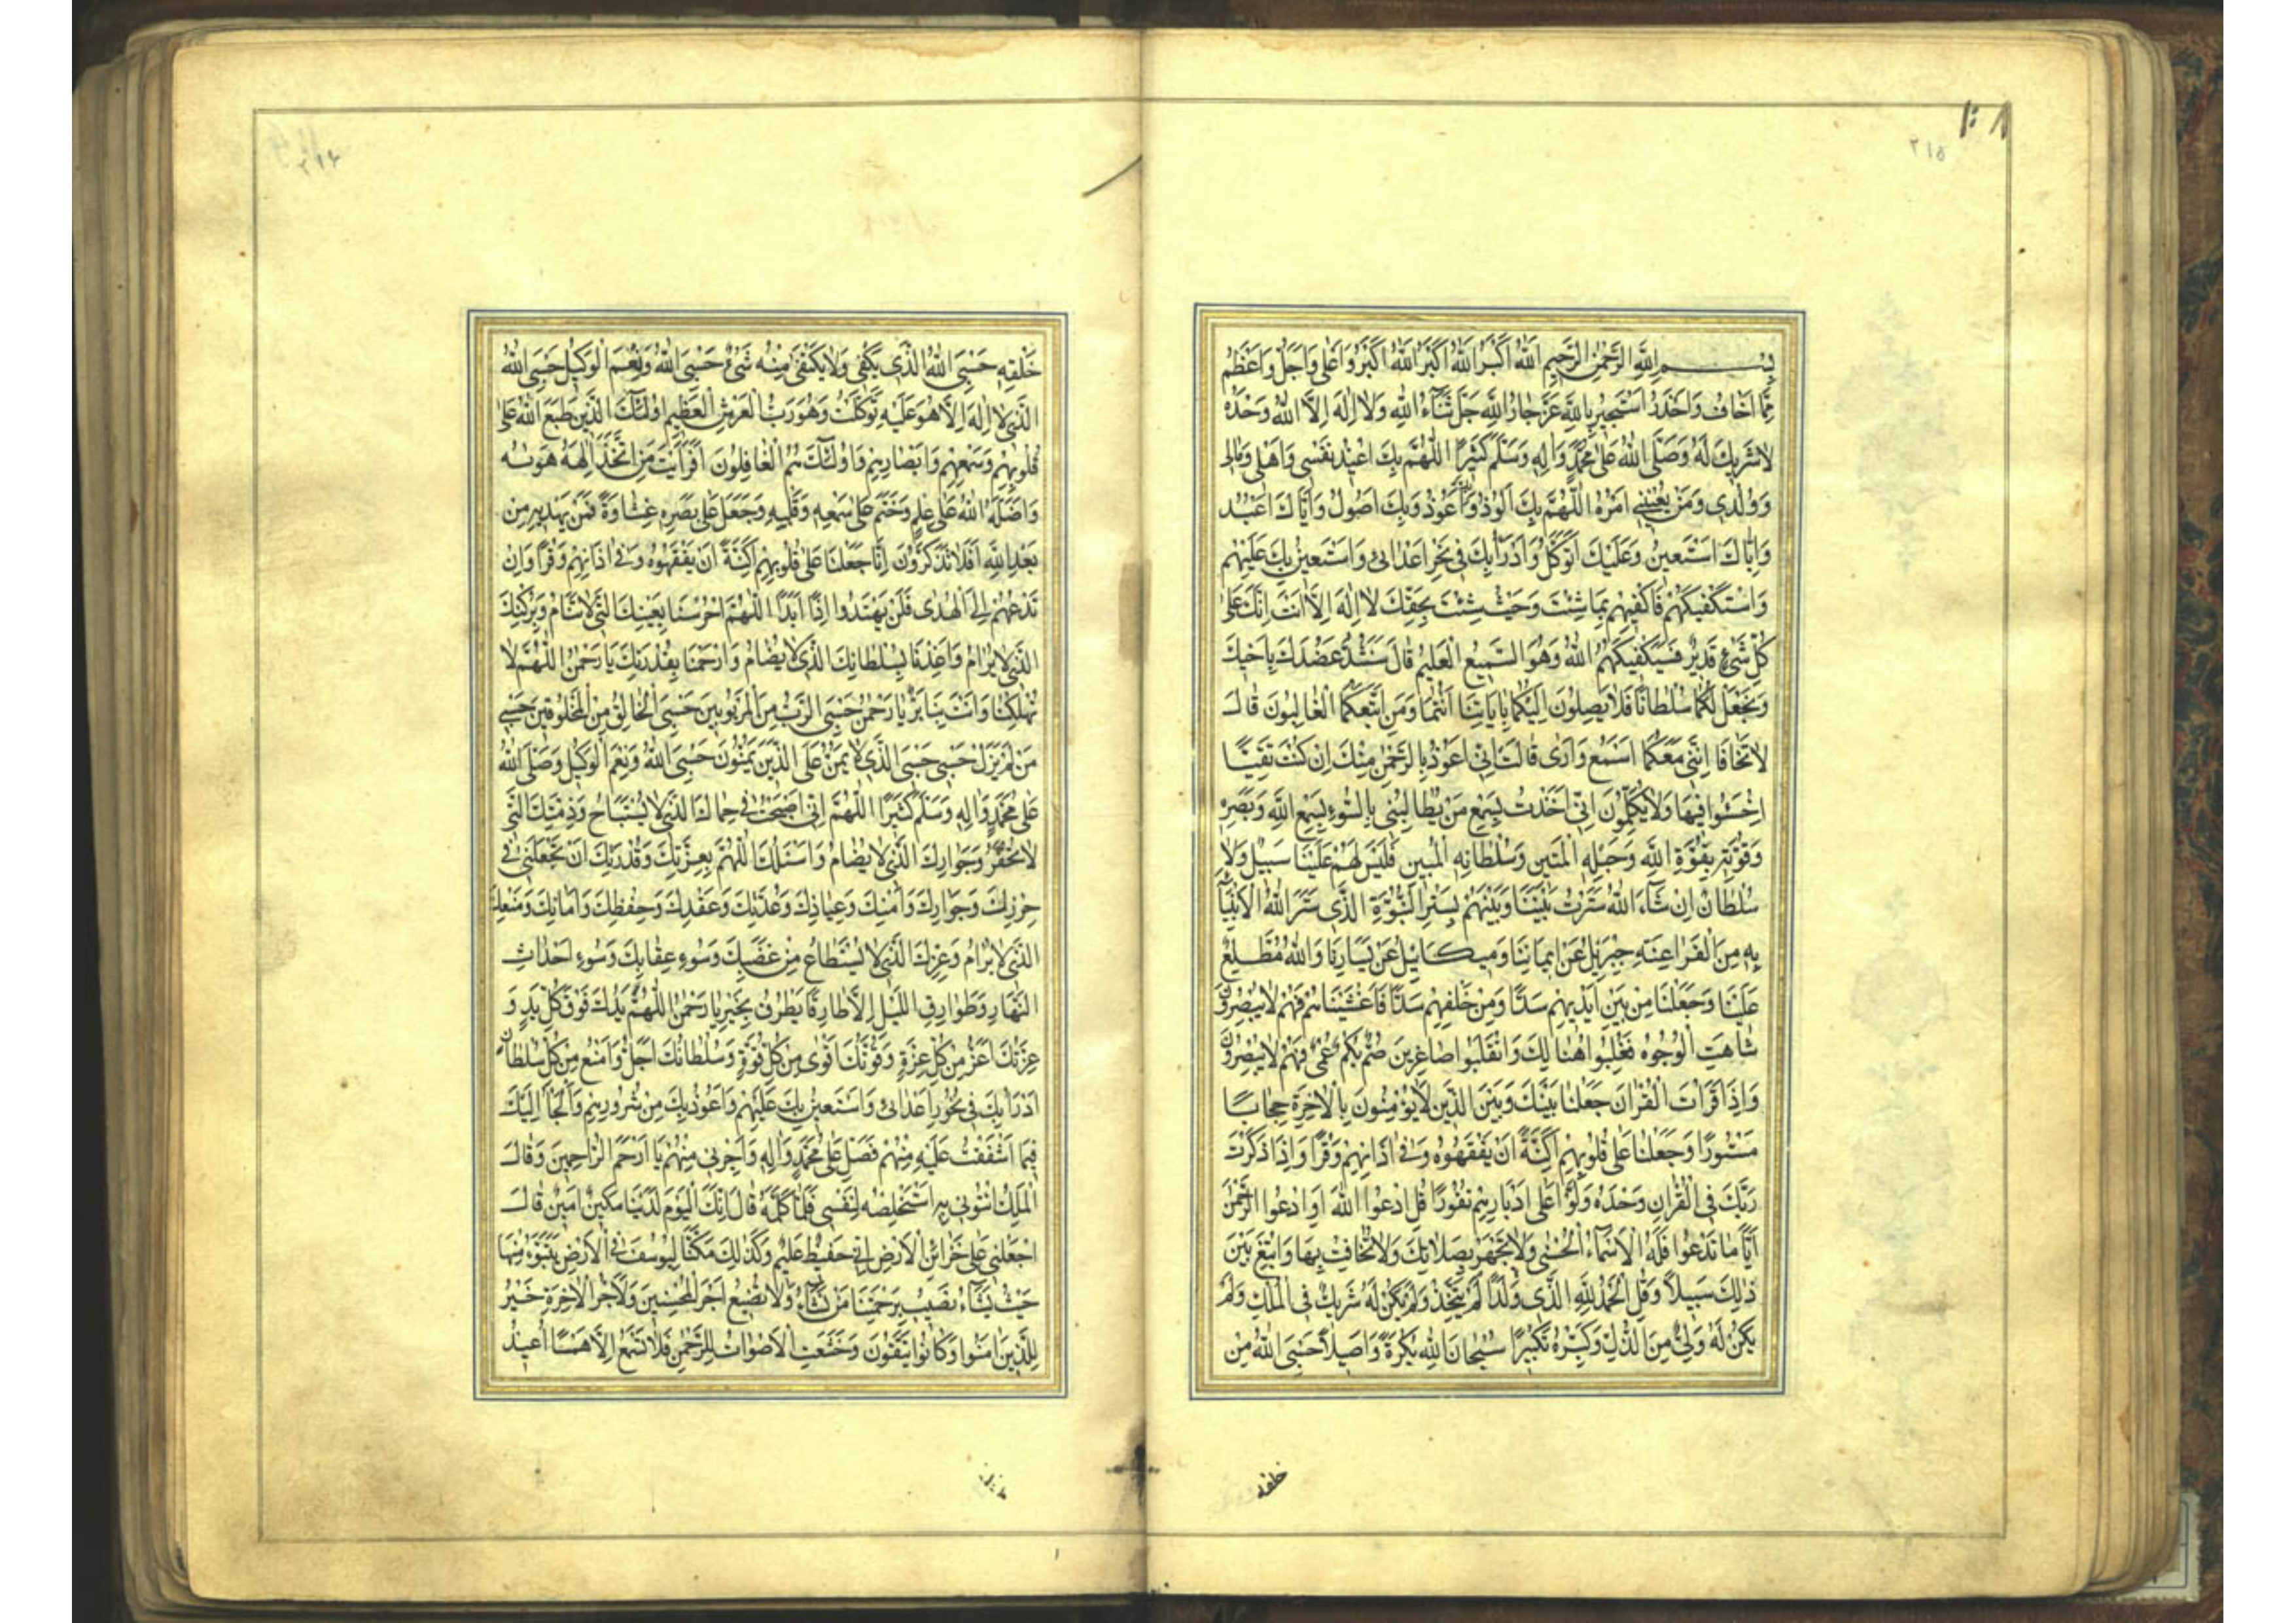 ٢١٥
بِسْمِ اللهِ الرَّحْمٰنِ الرَّحِيمِ اللهُ اَكْبَرُ اللهُ اَكْبَرُ اللهُ اَكْبَرُ وَاَعْلٰى وَاَجَلُّ وَاَعْظَمُ
مِمَّا اَخَافُ وَاَحْذَرُ اَسْتَجِيرُ بِاللهِ عَزَّ جَارُ اللهِ جَلَّ ثَنَآءُ اللهِ وَلَا اِلٰهَ اِلَّا اللهُ وَحْدَهُ
لَا شَرِيكَ لَهُ وَصَلَّى اللهُ عَلٰى مُحَمَّدٍ وَاٰلِهِ وَسَلَّمَ كَثِيرًا اَللّٰهُمَّ بِكَ اُعِيذُ نَفْسِي وَاَهْلِي وَمَالِي
وَوُلْدِي وَمَنْ يَعْنِينِي اَمْرُهُ اَللّٰهُمَّ بِكَ اَلُوذُ وَبِكَ اَعُوذُ وَبِكَ اَصُولُ وَاِيَّاكَ اَعْبُدُ
وَاِيَّاكَ اَسْتَعِينُ وَعَلَيْكَ اَتَوَكَّلُ وَاَدْرَأُ بِكَ فِي نَحْرِ اَعْدَائِي وَاَسْتَعِينُ بِكَ عَلَيْهِمْ
وَاَسْتَكْفِيكَهُمْ فَاكْفِنِيهِمْ بِمَا شِئْتَ وَحَيْثُ شِئْتَ بِحَقِّكَ لَا اِلٰهَ اِلَّا اَنْتَ اِنَّكَ عَلٰى
كُلِّ شَيْءٍ قَدِيرٌ فَسَيَكْفِيكَهُمُ اللهُ وَهُوَ السَّمِيعُ الْعَلِيمُ قَالَ سَنَشُدُّ عَضُدَكَ بِاَخِيكَ
وَنَجْعَلُ لَكُمَا سُلْطَانًا فَلَا يَصِلُونَ اِلَيْكُمَا بِاٰيَاتِنَا اَنْتُمَا وَمَنِ اتَّبَعَكُمَا الْغَالِبُونَ قَالَ
لَا تَخَافَا اِنَّنِي مَعَكُمَا اَسْمَعُ وَاَرٰى قَالَتْ اِنِّي اَعُوذُ بِالرَّحْمٰنِ مِنْكَ اِنْ كُنْتَ تَقِيًّا
اخْسَئُوا فِيهَا وَلَا تُكَلِّمُونِ اِنِّي اَخَذْتُ بِسَمْعِ مَنْ يُطَالِبُنِي بِالسُّوءِ بِسَمْعِ اللهِ وَبَصَرِهِ
وَقُوَّتِهِ بِقُوَّةِ اللهِ وَحَبْلِهِ الْمَتِينِ وَسُلْطَانِهِ الْمُبِينِ فَلَيْسَ لَهُمْ عَلَيْنَا سَبِيلٌ وَلَا
سُلْطَانٌ اِنْ شَآءَ اللهُ سَتَرْتُ بَيْنَنَا وَبَيْنَهُمْ بِسِتْرِ النُّبُوَّةِ الَّذِي سَتَرَ اللهُ الْاَنْبِيَآءَ
بِهِ مِنَ الْفَرَاعِنَةِ جِبْرَئِيلُ عَنْ اَيْمَانِنَا وَمِيكَائِيلُ عَنْ يَسَارِنَا وَاللهُ مُطَّلِعٌ
عَلَيْنَا وَجَعَلْنَا مِنْ بَيْنِ اَيْدِيهِمْ سَدًّا وَمِنْ خَلْفِهِمْ سَدًّا فَاَغْشَيْنَاهُمْ فَهُمْ لَا يُبْصِرُونَ
شَاهَتِ الْوُجُوهُ فَغُلِبُوا هُنَالِكَ وَانْقَلَبُوا صَاغِرِينَ صُمٌّ بُكْمٌ عُمْيٌ فَهُمْ لَا يُبْصِرُونَ
وَاِذَا قَرَأْتَ الْقُرْاٰنَ جَعَلْنَا بَيْنَكَ وَبَيْنَ الَّذِينَ لَا يُؤْمِنُونَ بِالْاٰخِرَةِ حِجَابًا
مَسْتُورًا وَجَعَلْنَا عَلٰى قُلُوبِهِمْ اَكِنَّةً اَنْ يَفْقَهُوهُ وَفِي اٰذَانِهِمْ وَقْرًا وَاِذَا ذَكَرْتَ
رَبَّكَ فِي الْقُرْاٰنِ وَحْدَهُ وَلَّوْا عَلٰى اَدْبَارِهِمْ نُفُورًا قُلِ ادْعُوا اللهَ اَوِ ادْعُوا الرَّحْمٰنَ
اَيًّا مَا تَدْعُوا فَلَهُ الْاَسْمَآءُ الْحُسْنٰى وَلَا تَجْهَرْ بِصَلَاتِكَ وَلَا تُخَافِتْ بِهَا وَابْتَغِ بَيْنَ
ذٰلِكَ سَبِيلًا وَقُلِ الْحَمْدُ لِلّٰهِ الَّذِي وَلَدًا لَمْ يَتَّخِذْ وَلَمْ يَكُنْ لَهُ شَرِيكٌ فِي الْمُلْكِ وَلَمْ
يَكُنْ لَهُ وَلِيٌّ مِنَ الذُّلِّ وَكَبِّرْهُ تَكْبِيرًا سُبْحَانَ اللهِ بُكْرَةً وَاَصِيلًا حَسْبِيَ اللهُ مِنْ
خلقه
٢١٦
خَلْقِهِ حَسْبِيَ اللهُ الَّذِي يَكْفِي وَلَا يَكْفِي مِنْهُ شَيْءٌ حَسْبِيَ اللهُ وَنِعْمَ الْوَكِيلُ حَسْبِيَ اللهُ
الَّذِي لَا اِلٰهَ اِلَّا هُوَ عَلَيْهِ تَوَكَّلْتُ وَهُوَ رَبُّ الْعَرْشِ الْعَظِيمِ اُولٰئِكَ الَّذِينَ طَبَعَ اللهُ عَلٰى
قُلُوبِهِمْ وَسَمْعِهِمْ وَاَبْصَارِهِمْ وَاُولٰئِكَ هُمُ الْغَافِلُونَ اَفَرَاَيْتَ مَنِ اتَّخَذَ اِلٰهَهُ هَوٰىهُ
وَاَضَلَّهُ اللهُ عَلٰى عِلْمٍ وَخَتَمَ عَلٰى سَمْعِهِ وَقَلْبِهِ وَجَعَلَ عَلٰى بَصَرِهِ غِشَاوَةً فَمَنْ يَهْدِيهِ مِنْ
بَعْدِ اللهِ اَفَلَا تَذَكَّرُونَ اِنَّا جَعَلْنَا عَلٰى قُلُوبِهِمْ اَكِنَّةً اَنْ يَفْقَهُوهُ وَفِي اٰذَانِهِمْ وَقْرًا وَاِنْ
تَدْعُهُمْ اِلَى الْهُدٰى فَلَنْ يَهْتَدُوا اِذًا اَبَدًا اَللّٰهُمَّ احْرُسْنَا بِعَيْنِكَ الَّتِي لَا تَنَامُ وَبِرُكْنِكَ
الَّذِي لَا يُرَامُ وَاَعِذْنَا بِسُلْطَانِكَ الَّذِي لَا يُضَامُ وَارْحَمْنَا بِقُدْرَتِكَ يَا رَحْمٰنُ اَللّٰهُمَّ لَا
تُهْلِكْنَا وَاَنْتَ بِنَا بَرٌّ يَا رَحْمٰنُ حَسْبِيَ الرَّبُّ مِنَ الْمَرْبُوبِينَ حَسْبِيَ الْخَالِقُ مِنَ الْمَخْلُوقِينَ حَسْبِي
مَنْ لَمْ يَزَلْ حَسْبِي حَسْبِيَ الَّذِي لَا يَمُنُّ عَلَى الَّذِينَ يَمُنُّونَ حَسْبِيَ اللهُ وَنِعْمَ الْوَكِيلُ وَصَلَّى اللهُ
عَلٰى مُحَمَّدٍ وَاٰلِهِ وَسَلَّمَ كَثِيرًا اَللّٰهُمَّ اِنِّي اَصْبَحْتُ فِي حِمَاكَ الَّذِي لَا يُسْتَبَاحُ وَذِمَّتِكَ الَّتِي
لَا تُخْفَرُ وَجِوَارِكَ الَّذِي لَا يُضَامُ وَاَسْئَلُكَ اللّٰهُمَّ بِعِزَّتِكَ وَقُدْرَتِكَ اَنْ تَجْعَلَنِي فِي
حِرْزِكَ وَجِوَارِكَ وَاَمْنِكَ وَعِيَاذِكَ وَعُدَّتِكَ وَعَقْدِكَ وَحِفْظِكَ وَاَمَانِكَ وَمَنْعِكَ
الَّذِي لَا يُرَامُ وَعِزِّكَ الَّذِي لَا يُسْتَطَاعُ مِنْ غَضَبِكَ وَسُوءِ عِقَابِكَ وَسُوءِ اَحْدَاثِ
النَّهَارِ وَطَوَارِقِ اللَّيْلِ اِلَّا طَارِقًا يَطْرُقُ بِخَيْرٍ يَا رَحْمٰنُ اَللّٰهُمَّ يَدُكَ فَوْقَ كُلِّ يَدٍ وَ
عِزَّتُكَ اَعَزُّ مِنْ كُلِّ عِزَّةٍ وَقُوَّتُكَ اَقْوٰى مِنْ كُلِّ قُوَّةٍ وَسُلْطَانُكَ اَجَلُّ وَاَمْنَعُ مِنْ كُلِّ سُلْطَانٍ
اَدْرَأُ بِكَ فِي نُحُورِ اَعْدَائِي وَاَسْتَعِينُ بِكَ عَلَيْهِمْ وَاَعُوذُ بِكَ مِنْ شُرُورِهِمْ وَاَلْجَأُ اِلَيْكَ
فِيمَا اَشْفَقْتُ عَلَيْهِ مِنْهُمْ فَصَلِّ عَلٰى مُحَمَّدٍ وَاٰلِهِ وَاَجِرْنِي مِنْهُمْ يَا اَرْحَمَ الرَّاحِمِينَ وَقَالَ
الْمَلِكُ ائْتُونِي بِهِ اَسْتَخْلِصْهُ لِنَفْسِي فَلَمَّا كَلَّمَهُ قَالَ اِنَّكَ الْيَوْمَ لَدَيْنَا مَكِينٌ اَمِينٌ قَالَ
اجْعَلْنِي عَلٰى خَزَائِنِ الْاَرْضِ اِنِّي حَفِيظٌ عَلِيمٌ وَكَذٰلِكَ مَكَّنَّا لِيُوسُفَ فِي الْاَرْضِ يَتَبَوَّءُ مِنْهَا
حَيْثُ يَشَآءُ نُصِيبُ بِرَحْمَتِنَا مَنْ نَشَآءُ وَلَا نُضِيعُ اَجْرَ الْمُحْسِنِينَ وَلَاَجْرُ الْاٰخِرَةِ خَيْرٌ
لِلَّذِينَ اٰمَنُوا وَكَانُوا يَتَّقُونَ وَخَشَعَتِ الْاَصْوَاتُ لِلرَّحْمٰنِ فَلَا تَسْمَعُ اِلَّا هَمْسًا اُعِيذُ